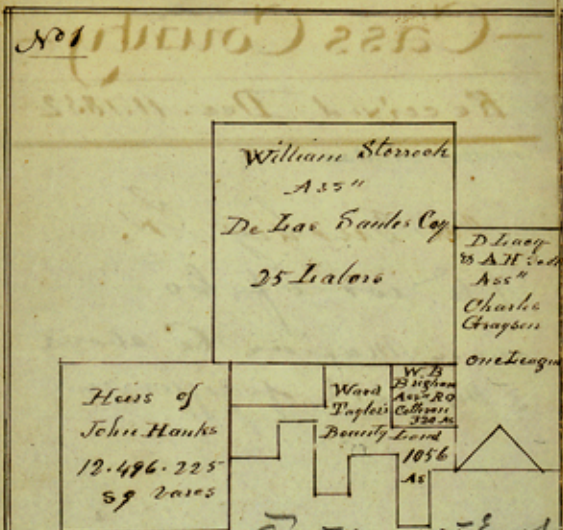 No 1
William Storrook
Ass"
De Las Santes Coy
25 Labors
D Lacy
& A H
Ass"
Charles
Grayson
One League
Heirs of
John Hanks
12.496.225
Sq Varas
Ward
Taylor's
Bounty Land
1056
As
W. B
Brigham
Ass" R O
320 As